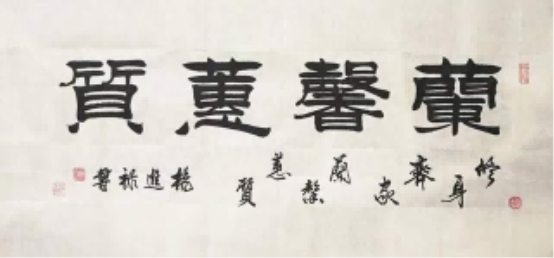 蘭馨蕙質
修身齊家蘭馨蕙質
楊進祿書